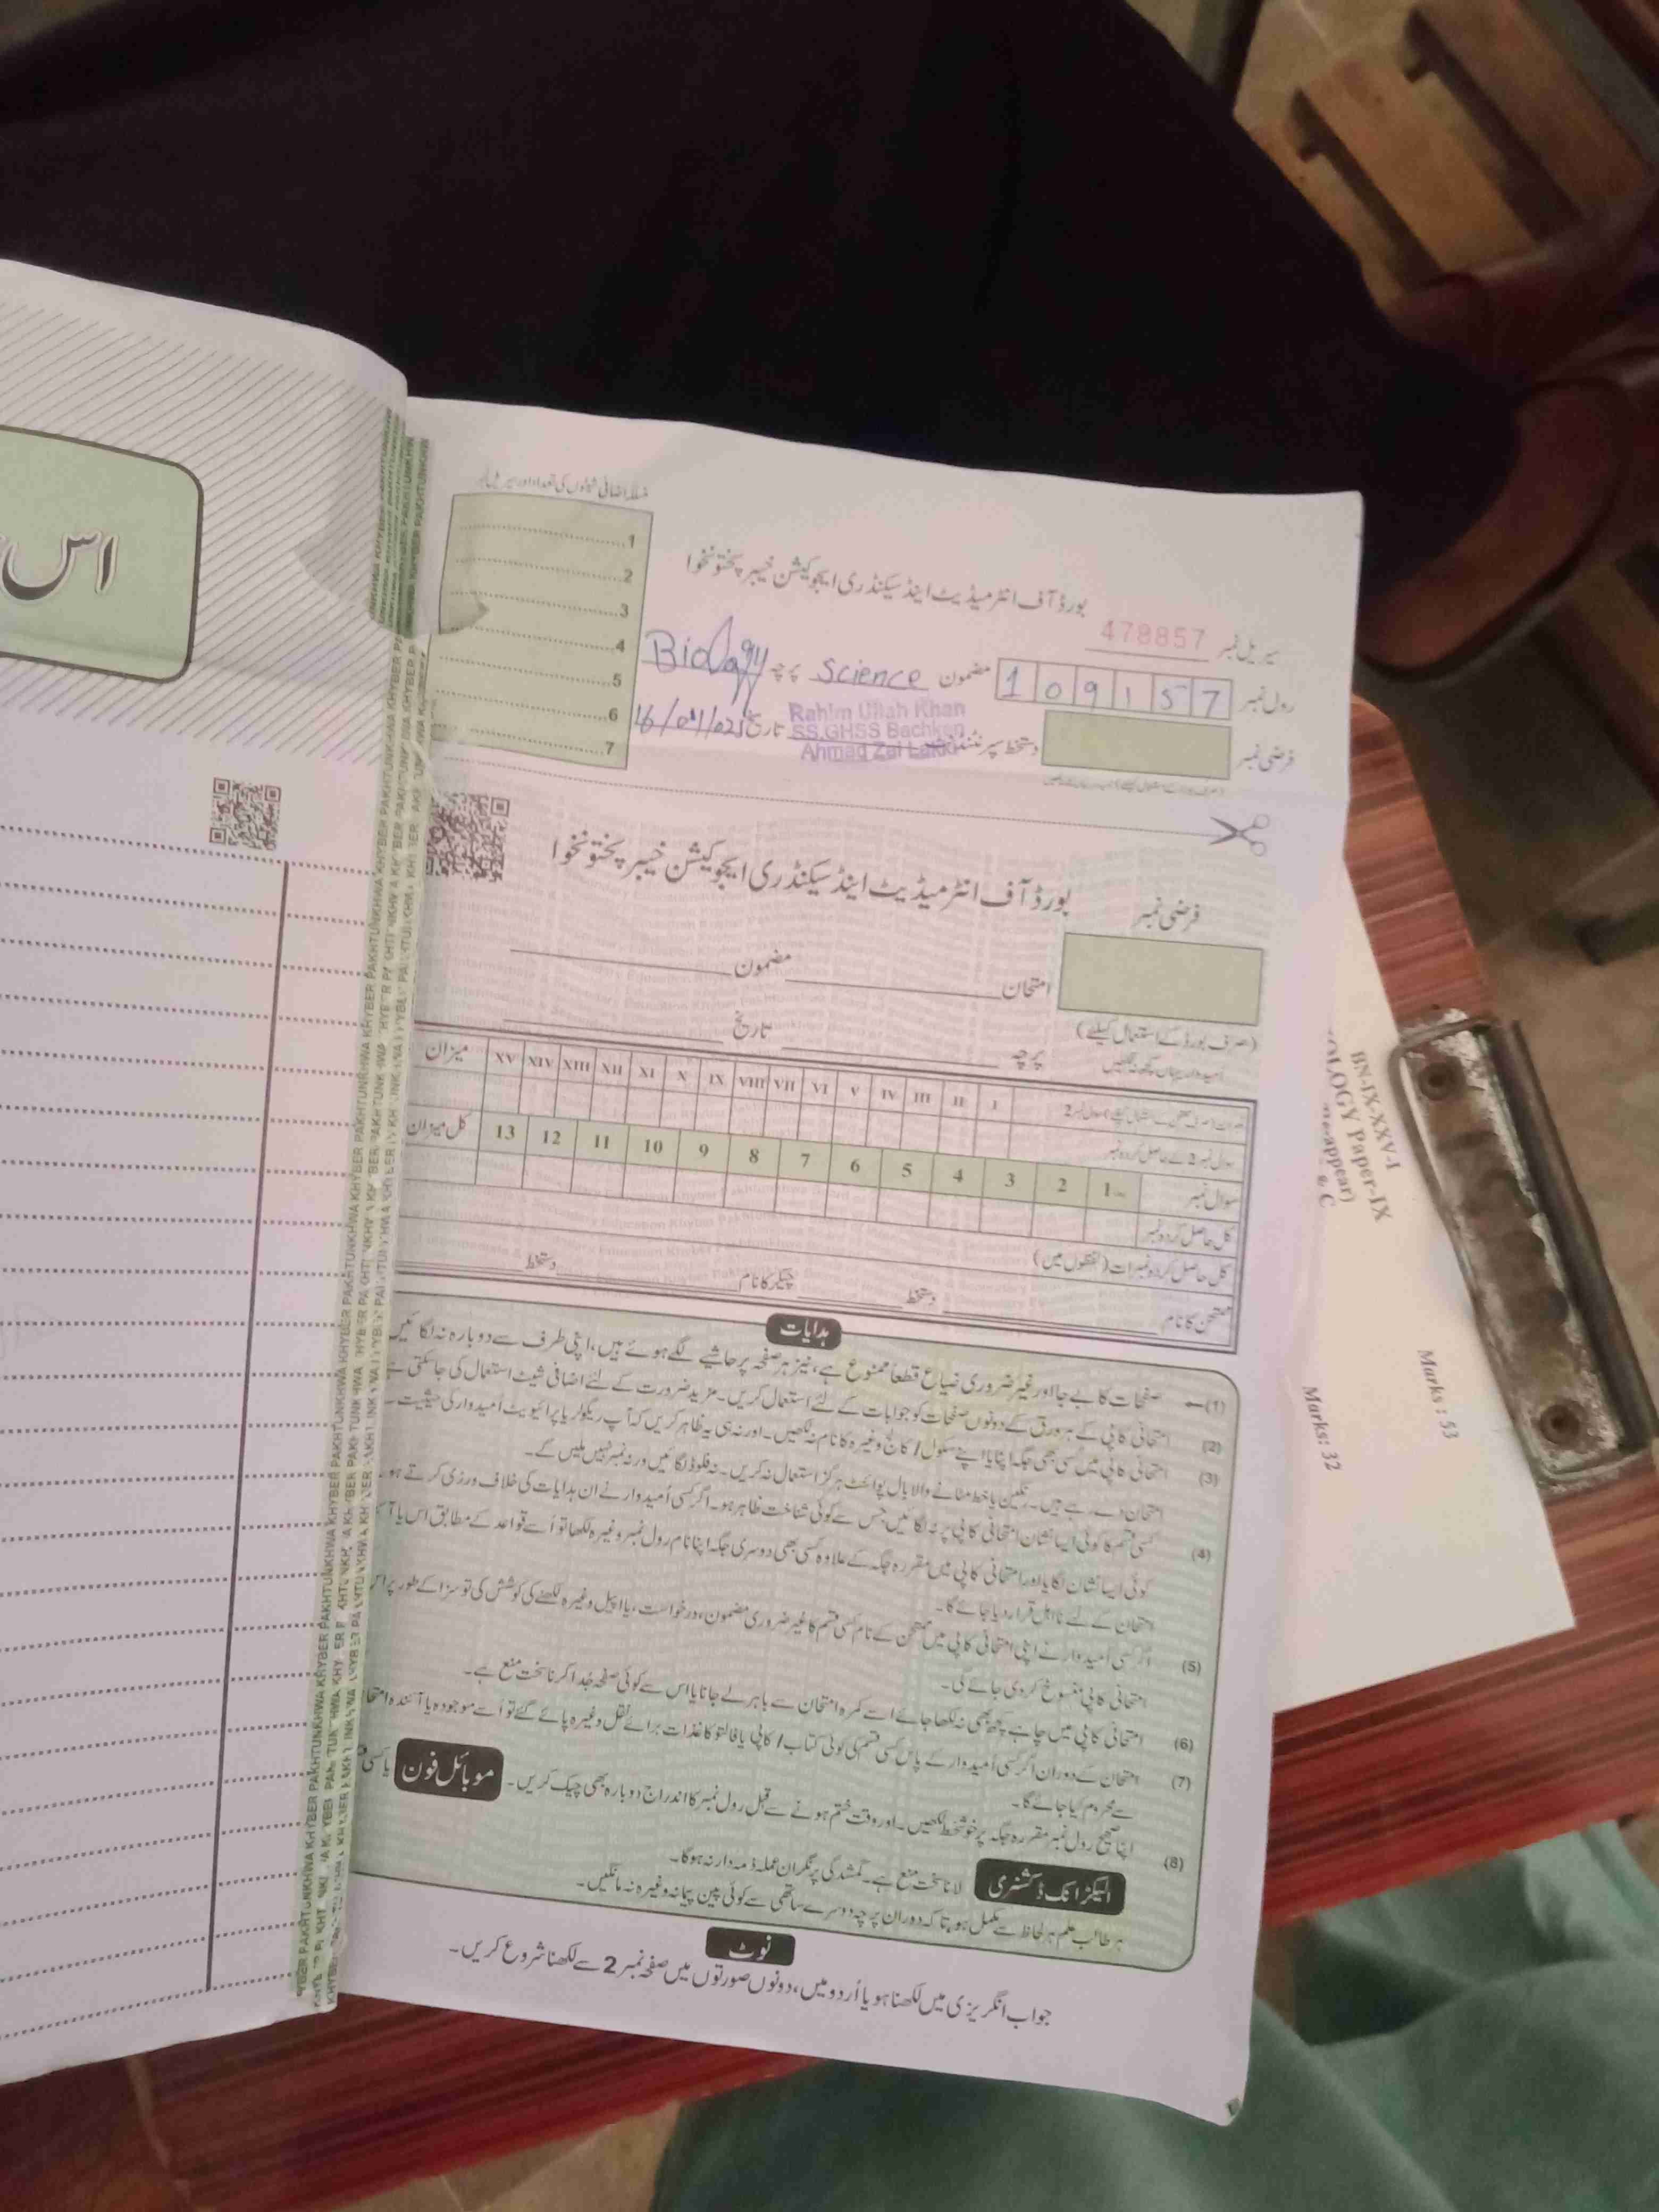 اس
منسلک اضافی شیٹوں کی تعداد اور سیریل نمبر
1
2
3
4
5
6
7
بورڈ آف انٹرمیڈیٹ اینڈ سیکنڈری ایجوکیشن خیبر پختونخوا
سیریل نمبر 478857
رول نمبر 109157 مضمون Science پرچہ Biology
فرضی نمبر دستخط سپرنٹنڈنٹ تاریخ
Rahim Ullah Khan
SS GHSS Bachkan
Ahmad Zai Lakki
بورڈ آف انٹرمیڈیٹ اینڈ سیکنڈری ایجوکیشن خیبر پختونخوا
فرضی نمبر
امتحان مضمون
(صرف بورڈ کے استعمال کیلئے)
اُمیدوار یہاں کچھ نہ لکھیں
پرچہ تاریخ
I II III IV V VI VII VIII IX X XI XII XIII XIV XV میزان
سوال نمبر 2 کے حاصل کردہ نمبر
سوال نمبر 1 2 3 4 5 6 7 8 9 10 11 12 13 کل میزان
کل حاصل کردہ نمبر
کل حاصل کردہ نمبرات (لفظوں میں)
ممتحن کا نام دستخط چیکر کا نام دستخط
ہدایات
(1) صفحات کا بے جا اور غیر ضروری ضیاع قطعاً ممنوع ہے، نیز ہر صفحہ پر حاشیے لگے ہوئے ہیں، اپنی طرف سے دوبارہ نہ لگائیں
(2) امتحانی کاپی کے ہر ورق کے دونوں صفحات کو جوابات کے لئے استعمال کریں۔ مزید ضرورت کے لئے اضافی شیٹ استعمال کی جا سکتی ہے
(3) امتحانی کاپی میں کسی بھی جگہ اپنا یا اپنے سکول / کالج وغیرہ کا نام نہ لکھیں۔ اور نہ ہی یہ ظاہر کریں کہ آپ ریگولر یا پرائیویٹ اُمیدوار کی حیثیت
امتحان دے رہے ہیں۔ رنگین یا خط مٹانے والا بال پوائنٹ ہرگز استعمال نہ کریں۔ نہ فلوڈ لگائیں ورنہ نمبر نہیں ملیں گے۔
(4) کسی قسم کا کوئی ایسا نشان امتحانی کاپی پر نہ لگائیں جس سے کوئی شناخت ظاہر ہو۔ اگر کسی اُمیدوار نے ان ہدایات کی خلاف ورزی کرتے ہو
کوئی ایسا نشان لگایا اور امتحانی کاپی میں مقررہ جگہ کے علاوہ کسی بھی دوسری جگہ اپنا نام رول نمبر وغیرہ لکھا تو اُسے قواعد کے مطابق اس یا آ
امتحان کے لئے نااہل قرار دیا جائے گا۔
(5) اگر کسی اُمیدوار نے اپنی امتحانی کاپی میں ممتحن کے نام کسی قسم کا غیر ضروری مضمون، درخواست، یا اپیل وغیرہ لکھنے کی کوشش کی تو سزا کے طور پر اس
امتحانی کاپی منسوخ کر دی جائے گی۔
(6) امتحانی کاپی میں چاہے کچھ بھی نہ لکھا جائے اسے کمرہ امتحان سے باہر لے جانا یا اس سے کوئی صفحہ جُدا کرنا سخت منع ہے۔
(7) امتحان کے دوران اگر کسی اُمیدوار کے پاس کسی قسم کی کوئی کتاب / کاپی یا فالتو کاغذات برائے نقل وغیرہ پائے گئے تو اُسے موجودہ یا آئندہ امتحا
سے محروم کیا جائے گا۔
(8) اپنا صحیح رول نمبر مقررہ جگہ پر خوشخط لکھیں۔ اور وقت ختم ہونے سے قبل رول نمبر کا اندراج دوبارہ بھی چیک کریں۔ موبائل فون یا کسی
الیکٹرانک ڈکشنری لانا سخت منع ہے۔ گمشدگی پر نگران عملہ ذمہ دار نہ ہوگا۔
ہر طالب علم ہر لحاظ سے مکمل ہو، تاکہ دوران پرچہ دوسرے ساتھی سے کوئی پین پیمانہ وغیرہ نہ مانگیں۔
نوٹ
جواب انگریزی میں لکھنا ہو یا اُردو میں، دونوں صورتوں میں صفحہ نمبر 2 سے لکھنا شروع کریں۔
BN-IX-XXV-I
OLOGY Paper-IX
e-appear)
Marks : 53
Marks: 32